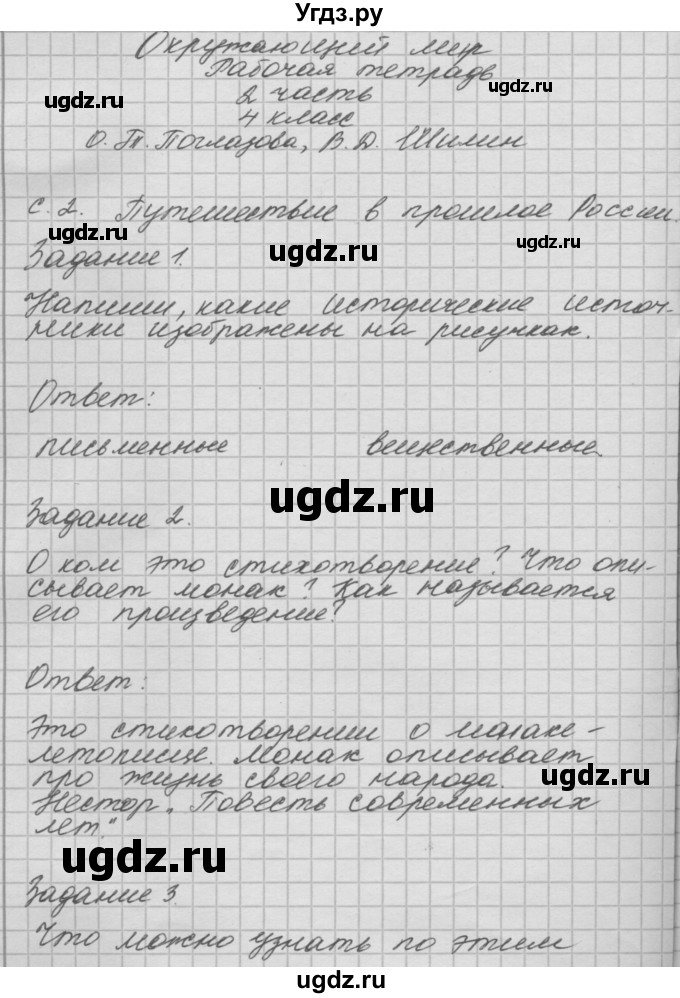 Угдз.ру
Окружающий мир
Рабочая тетрадь
ugdz.ru
ugdz.ru
2 часть
4 класс
О. Т. Поглазова, В. Д. Шилин
ugdz.ru
с. 2. Путешествие в прошлое России.
Задание 1.
ugdz.ru
ugdz.ru
Напиши, какие исторические источ-
ники изображены на рисунках.
Ответ:
письменные вещественные
ugdz.ru
Задание 2.
О ком это стихотворение? Что опи-
сывает монах? Как называется
его произведение?
Ответ:
Это стихотворении о монахе-
летописце. Монах описывает
про жизнь своего народа.
ugdz.ru
Нестор „Повесть современных
лет."
ugdz.ru
Задание 3.
Что можно узнать по этим
ugdz.ru
Угдз.ру